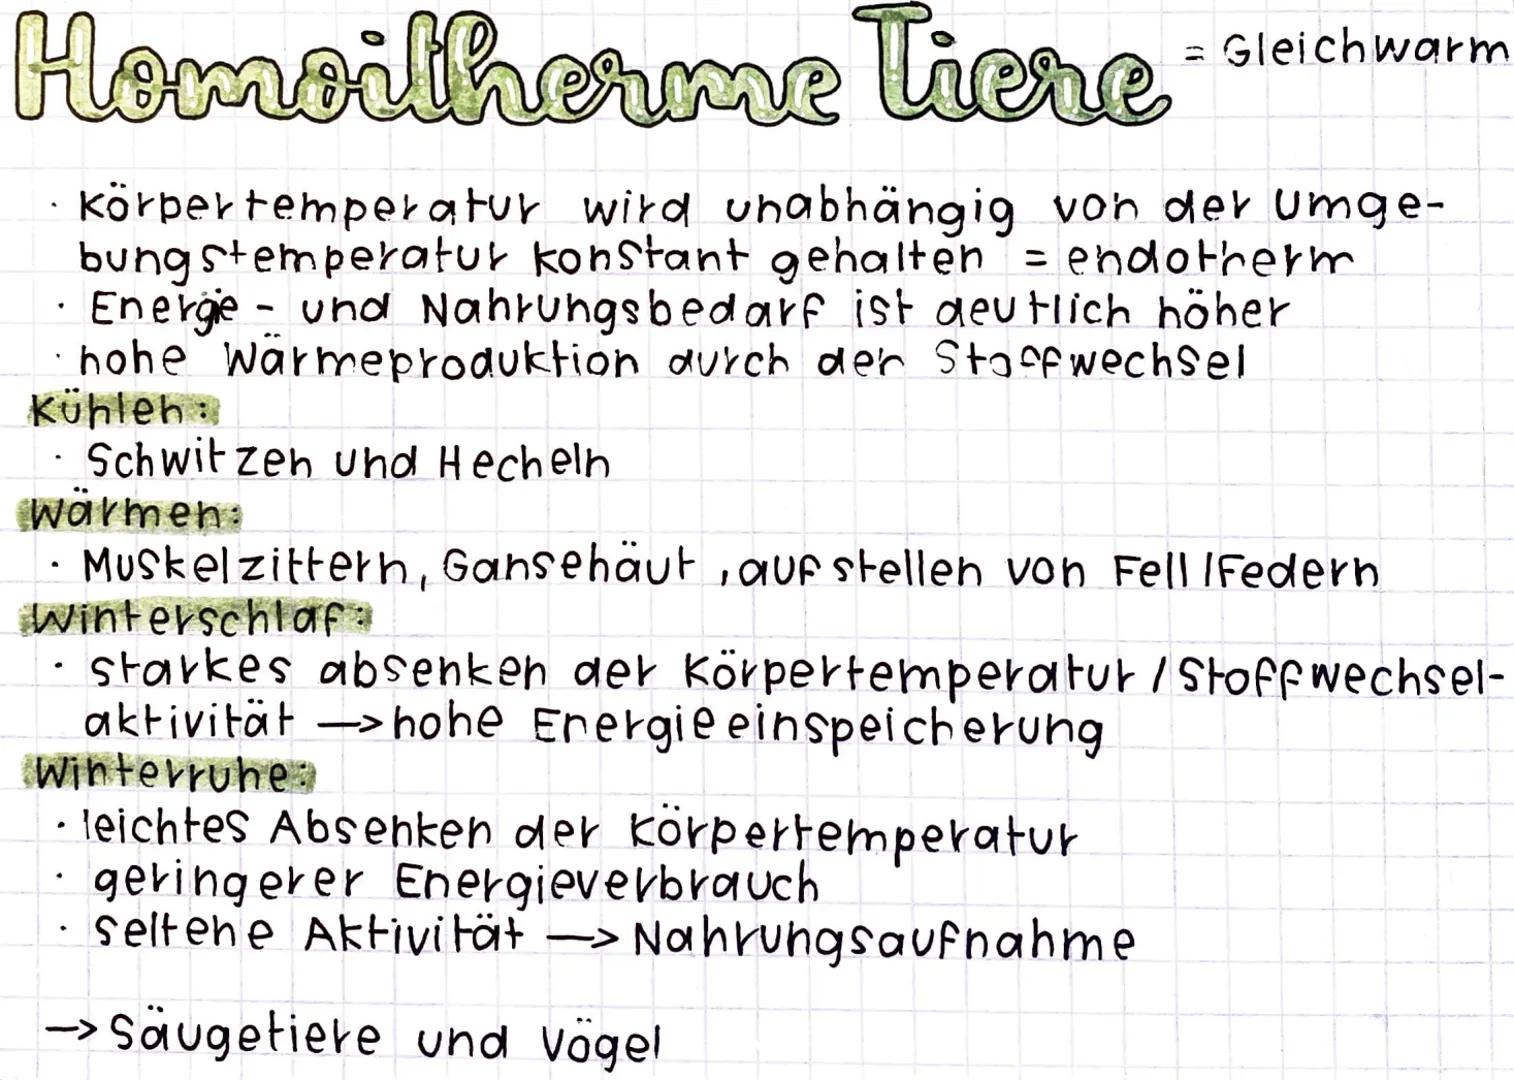 Homoitherme Tiere = Gleichwarm
· Körpertemperatur wird unabhängig von der Umge-
bungstemperatur konstant gehalten = endotherm
· Energie- und Nahrungsbedarf ist deutlich höher
· hohe Wärmeproduktion durch den Stoffwechsel
Kühlen:
· Schwitzen und Hecheln
Wärmen:
· Muskelzittern, Gansehäut, aufstellen von Fell/Federn
Winterschlaf:
· starkes absenken der Körpertemperatur / Stoffwechsel-
aktivität → hohe Energieeinspeicherung
Winterruhe:
· leichtes Absenken der Körpertemperatur
· geringerer Energieverbrauch
· seltene Aktivität → Nahrungsaufnahme
→ Säugetiere und Vögel